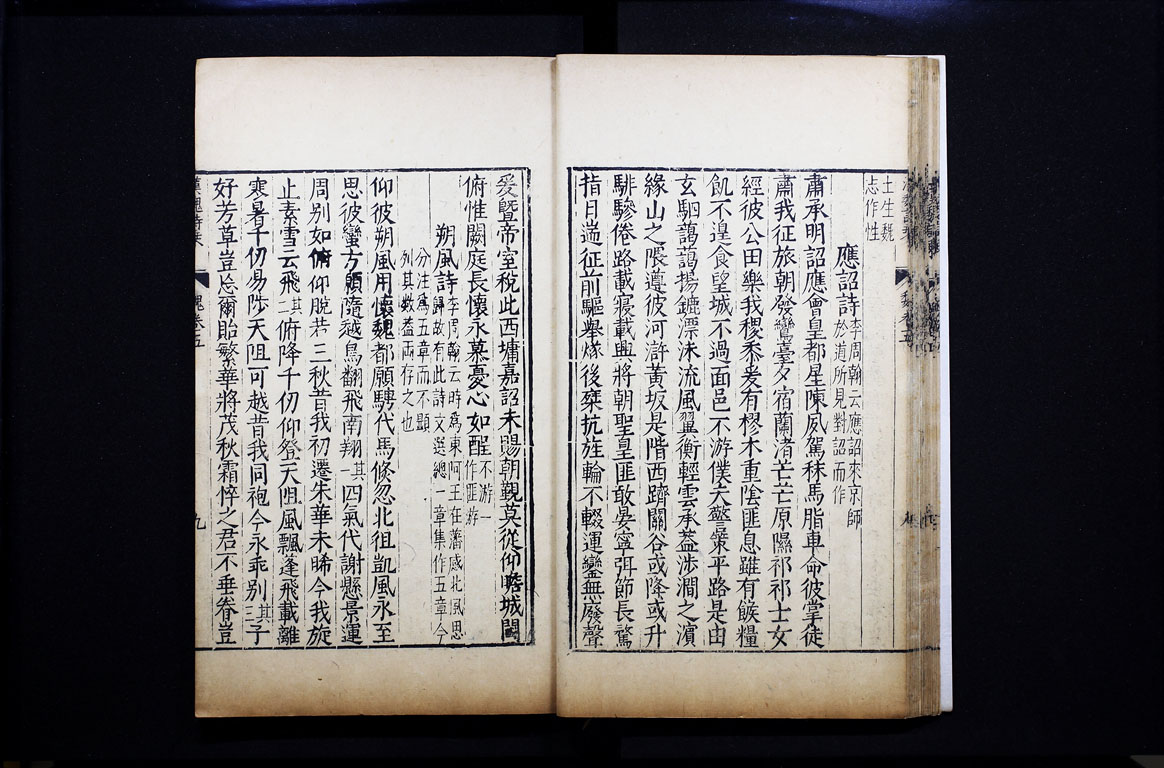 土生魏
志作性
應詔詩李周翰云應詔來京師
於道所見對詔而作
肅承明詔應會皇都星陳夙駕秣馬脂車命彼掌徒
肅我征旅朝發鸞臺夕宿蘭渚芒芒原隰祁祁士女
經彼公田樂我稷黍爰有樛木重陰匪息雖有餱糧
飢不遑食望城不過面邑不游僕夫警策平路是由
玄駟藹藹揚鑣漂沫流風翼衡輕雲承蓋涉澗之濱
緣山之隈遵彼河滸黃坂是階西躋關谷或降或升
騑驂倦路載寢載興將朝聖皇匪敢晏寧弭節長騖
指日遄征前驅舉燧後乘抗旌輪不輟運鑾無廢聲
爰曁帝室稅此西墉嘉詔未賜朝覲莫從仰瞻城閾
俯惟闕庭長懷永慕憂心如酲不游一
作匪游
朔風詩李周翰云時爲東阿王在藩感北風思
歸故有此詩文選總一章集作五章今
分注爲五章而不顯
列其數葢兩存之也
仰彼朔風用懷魏都願騁代馬倏忽北徂凱風永至
思彼蠻方願隨越鳥翻飛南翔其
一四氣代謝懸景運
周別如俯仰脫若三秋昔我初遷朱華未晞今我旋
止素雪云飛其
二俯降千仞仰登天阻風飄蓬飛載離
寒暑千仞易陟天阻可越昔我同袍今永乖別其
三子
好芳草豈忘爾貽繁華將茂秋霜悴之君不垂眷豈
漢魏詩
魏卷五
九